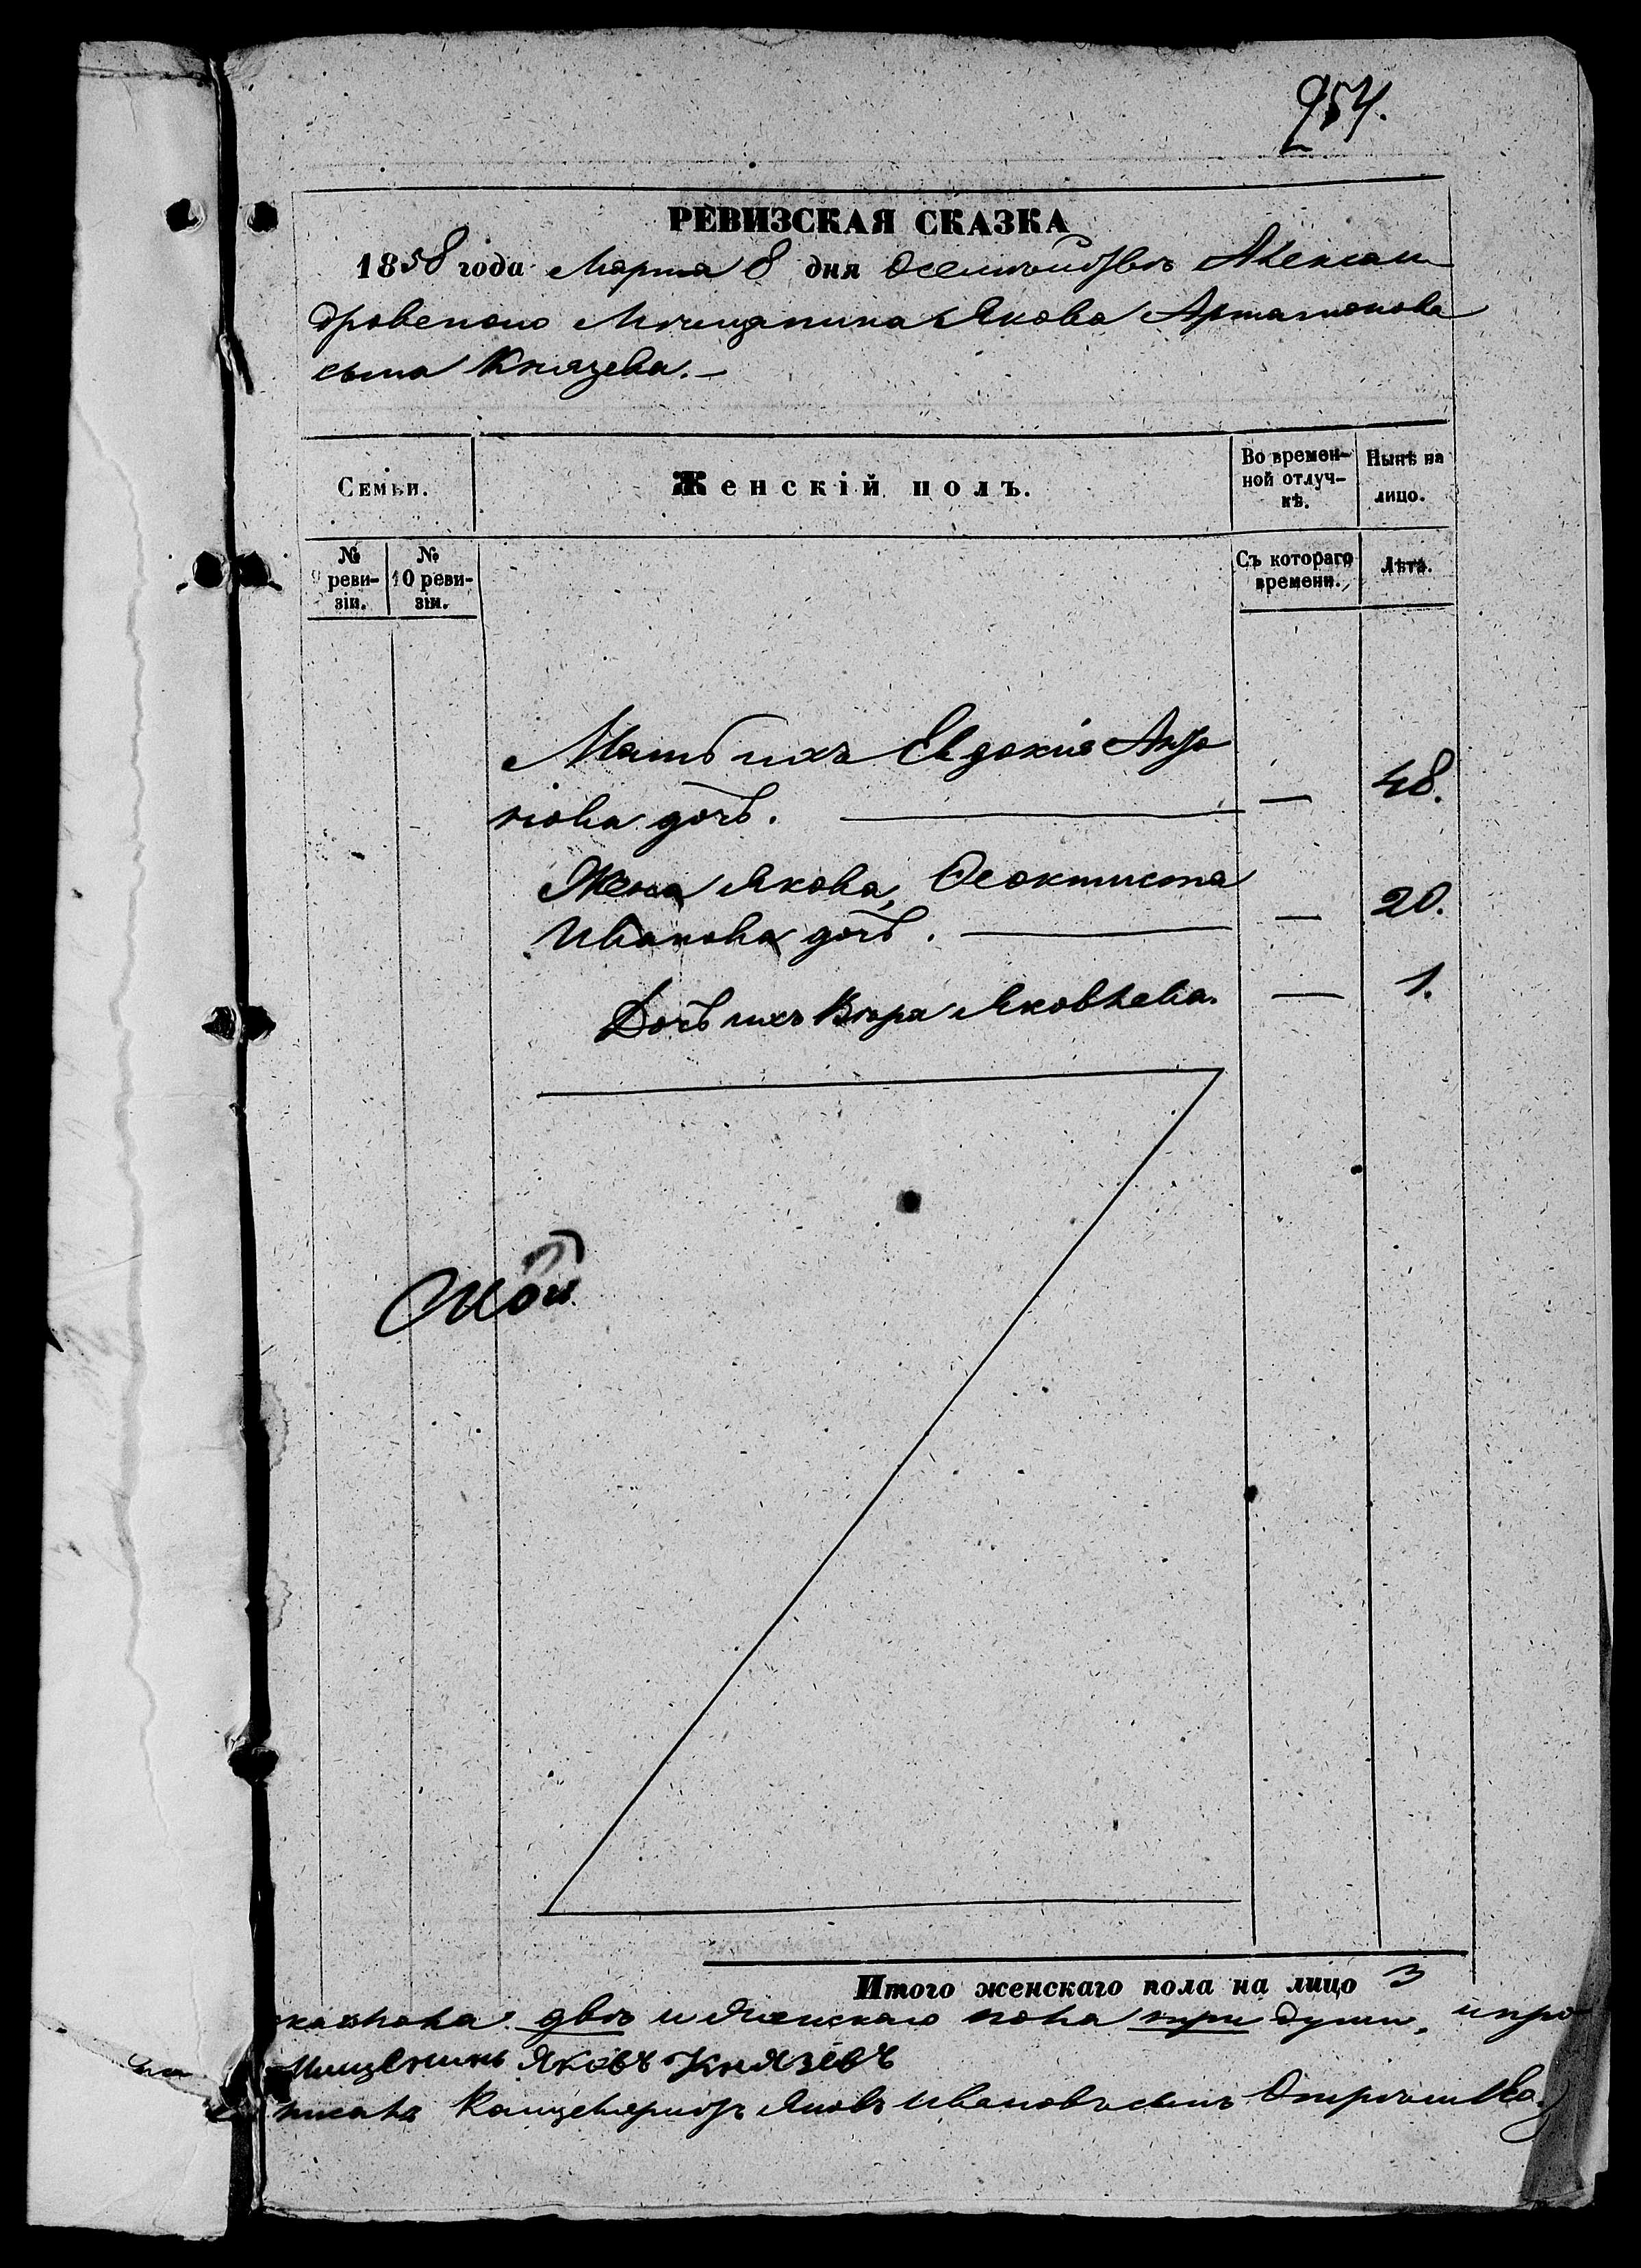 254.
РЕВИЗСКАЯ СКАЗКА
1858 года Марта 8 дня Алексан
дровскаго Мѣщанина Якова Артамонова
сына Князева.
Семьи.
Женскій полъ.
Во времен-
ной отлуч-
кѣ.
Нынѣ на
лицо.
№
9 реви-
зіи.
№
10 реви-
зіи.
Съ котораго
времени.
Лѣта.
Мать ихъ Евдокія
дочь. — 48.
Жена Якова, Ѳеоктиста
Иванова дочь. — 20.
Дочь ихъ Вѣра Яковлева. — 1.
Итого женскаго пола на лицо 3
пола двѣ и женскаго пола три души, и про
Мищенинъ Яковъ Князевъ
Яковъ Ивановъ сынъ